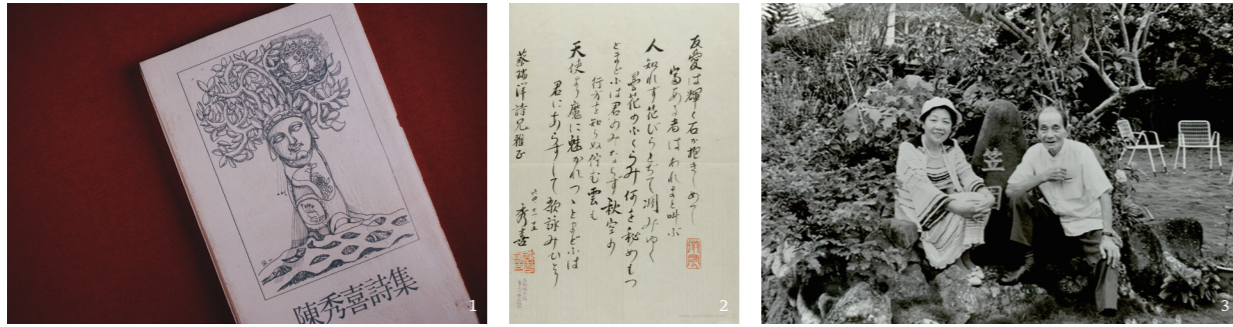 陳秀喜詩集
1
友愛は輝く石か抱きしめて
者はわれ と叫ぶ
人知れず花びらとぢて凋みゆく
曇花のふくらみ何を秘めもつ
とまどふは君のみならず秋空の
行方を知らぬ佇む雲も
天使より魔に魅かれつつとまどふは
君にあらずして歌詠みひとり
蔡瑞洋詩兄雅正
秀喜
2
笠
3